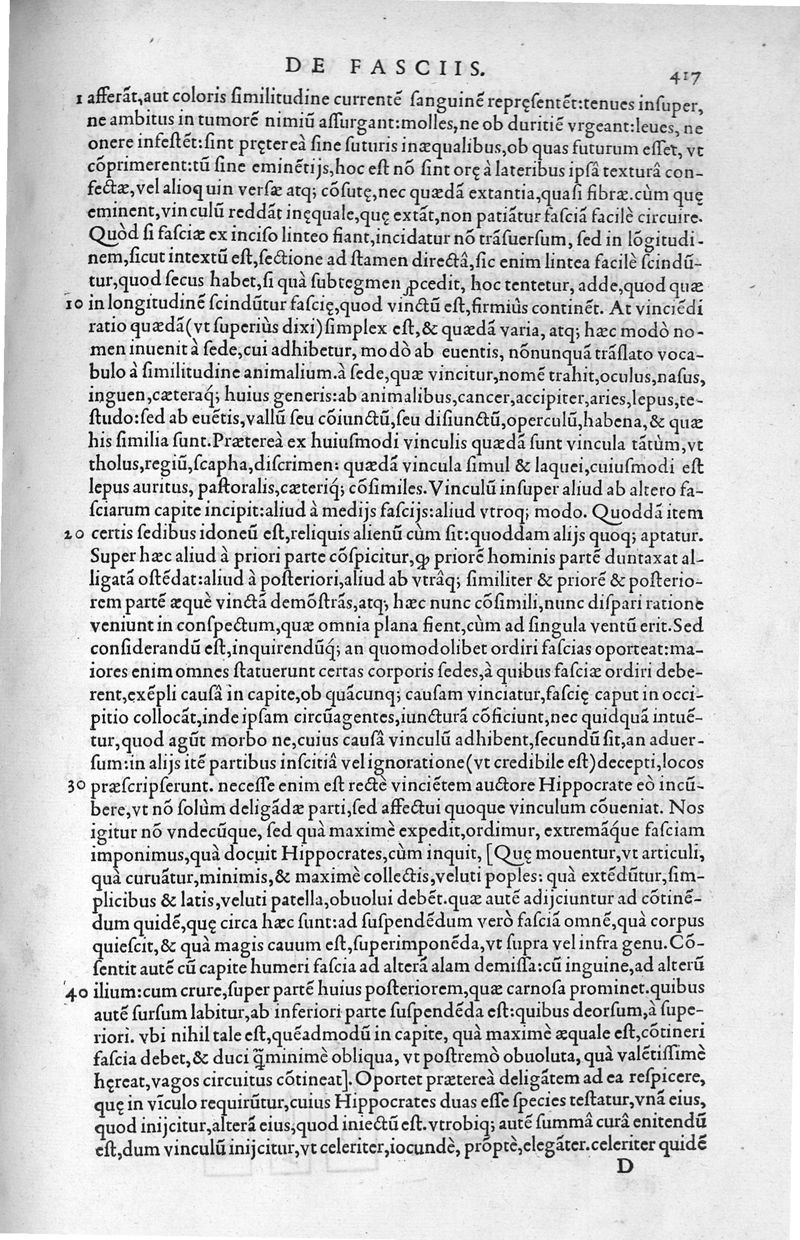 DE FASCIIS.
417
1 afferāt,aut coloris ſimilitudine currentē ſanguinē repręſentēt:tenues inſuper,
ne ambitus in tumorē nimiū aſſurgant:molles,ne ob duritiē vrgeant:leues, ne
onere infeſtēt:ſint pręterеà ſine futuris inæqualibus,ob quas futurum eſſet, vt
cōprimerent:tū ſine eminētijs,hoc eſt nō ſint orę à lateribus ipſâ texturâ con-
fectæ,vel alioquin verſæ atq; cōſutę,nec quædā extantia,quaſi fibræ.cùm quę
eminent,vinculū reddāt inęquale,quę extāt,non patiātur faſciā facilè circuire.
Quòd ſi faſciæ ex inciſo linteo fiant,incidatur nō trāſuerſum, ſed in lōgitudi-
nem,ſicut intextū eſt,ſectione ad ſtamen directâ,ſic enim lintea facilè ſcindū-
tur,quod ſecus habet,ſi quà ſubtegmen ꝓcedit, hoc tentetur, adde,quod quæ
10 in longitudinē ſcindūtur faſcię,quod vinctū eſt,firmiùs continēt. At vinciēdi
ratio quædā(vt ſuperiùs dixi)ſimplex eſt,& quædā varia, atq; hæc modò no-
men inuenit à ſede,cui adhibetur, modò ab euentis, nōnunquā trāſlato voca-
bulo à ſimilitudine animalium.à ſede,quæ vincitur,nomē trahit,oculus,naſus,
inguen,cæteraq́; huius generis:ab animalibus,cancer,accipiter,aries,lepus,te-
ſtudo:ſed ab euētis,vallū ſeu cōiunctū,ſeu diſiunctū,operculū,habena,& quæ
his ſimilia ſunt.Prætereà ex huiuſmodi vinculis quædā ſunt vincula tātùm,vt
tholus,regiū,ſcapha,diſcrimen: quædā vincula ſimul & laquei,cuiuſmodi eſt
lepus auritus, paſtoralis,cæteriq́; cōſimiles.Vinculū inſuper aliud ab altero fa-
ſciarum capite incipit:aliud à medijs faſcijs:aliud vtroq; modo. Quoddā item
20 certis ſedibus idoneū eſt,reliquis alienū cùm ſit:quoddam alijs quoq; aptatur.
Super hæc aliud à priori parte cōſpicitur,ꝙ priorē hominis partē duntaxat al-
ligatā oſtēdat:aliud à poſteriori,aliud ab vtrâq; ſimiliter & priorē & poſterio-
rem partē æquè vinctā demōſtrās,atq; hæc nunc cōſimili,nunc diſpari ratione
veniunt in conſpectum,quæ omnia plana fient,cùm ad ſingula ventū erit.Sed
conſiderandū eſt,inquirendūq́; an quomodolibet ordiri faſcias oporteat:ma-
iores enim omnes ſtatuerunt certas corporis ſedes,à quibus faſciæ ordiri debe-
rent,exēpli cauſâ in capite,ob quācunq; cauſam vinciatur,faſcię caput in occi-
pitio collocāt,inde ipſam circūagentes,iuncturā cōficiunt,nec quidquā intuē-
tur,quod agūt morbo ne,cuius cauſâ vinculū adhibent,ſecundū ſit,an aduer-
ſum:in alijs itē partibus inſcitiâ vel ignoratione(vt credibile eſt)decepti,locos
30 præſcripſerunt. neceſſe enim eſt rectè vinciētem auctore Hippocrate eò incū-
bere,vt nō ſolùm deligādæ parti,ſed affectui quoque vinculum cōueniat. Nos
igitur nō vndecūque, ſed quà maximè expedit,ordimur, extremāq́ue faſciam
imponimus,quà docuit Hippocrates,cùm inquit, [Quę mouentur,vt articuli,
quà curuātur,minimis,& maximè collectis,veluti poples: quà extēdūtur,ſim-
plicibus & latis,veluti patella,obuolui debēt.quæ autē adijciuntur ad cōtinē-
dum quidē,quę circa hæc ſunt:ad ſuſpendēdum verò faſciā omnē,quà corpus
quieſcit,& quà magis cauum eſt,ſuperimponēda,vt ſupra vel infra genu. Cō-
ſentit autē cū capite humeri faſcia ad alterā alam demiſſa:cū inguine,ad alterū
40 ilium:cum crure,ſuper partē huius poſteriorem,quæ carnoſa prominet.quibus
autē ſurſum labitur,ab inferiori parte ſuſpendēda eſt:quibus deorſum,à ſupe-
riori. vbi nihil tale eſt,quēadmodū in capite, quà maximè æquale eſt,cōtineri
faſcia debet,& duci q̄̃minimè obliqua, vt poſtremò obuoluta, quà valētiſſimè
hęreat,vagos circuitus cōtineat]. Oportet prætereà deligātem ad ea reſpicere,
quę in vīculo requirūtur,cuius Hippocrates duas eſſe ſpecies teſtatur,vnā eius,
quod inijcitur,alterā eius,quod iniectū eſt.vtrobiq; autē ſummâ curâ enitendū
eſt,dum vinculū inijcitur,vt celeriter,iocundè, prōptè,elegāter.celeriter quidē
D